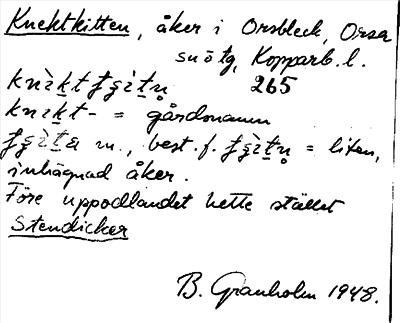 Knektkitten, åker i Orsbleck, Orsa
sn ö tg, Kopparb. l.
265
knekt- = gårdsnamn
m., best. f. = liten,
inhägnad åker.
Före uppodlandet hette stället
Stendicker
B. Granholm 1948.